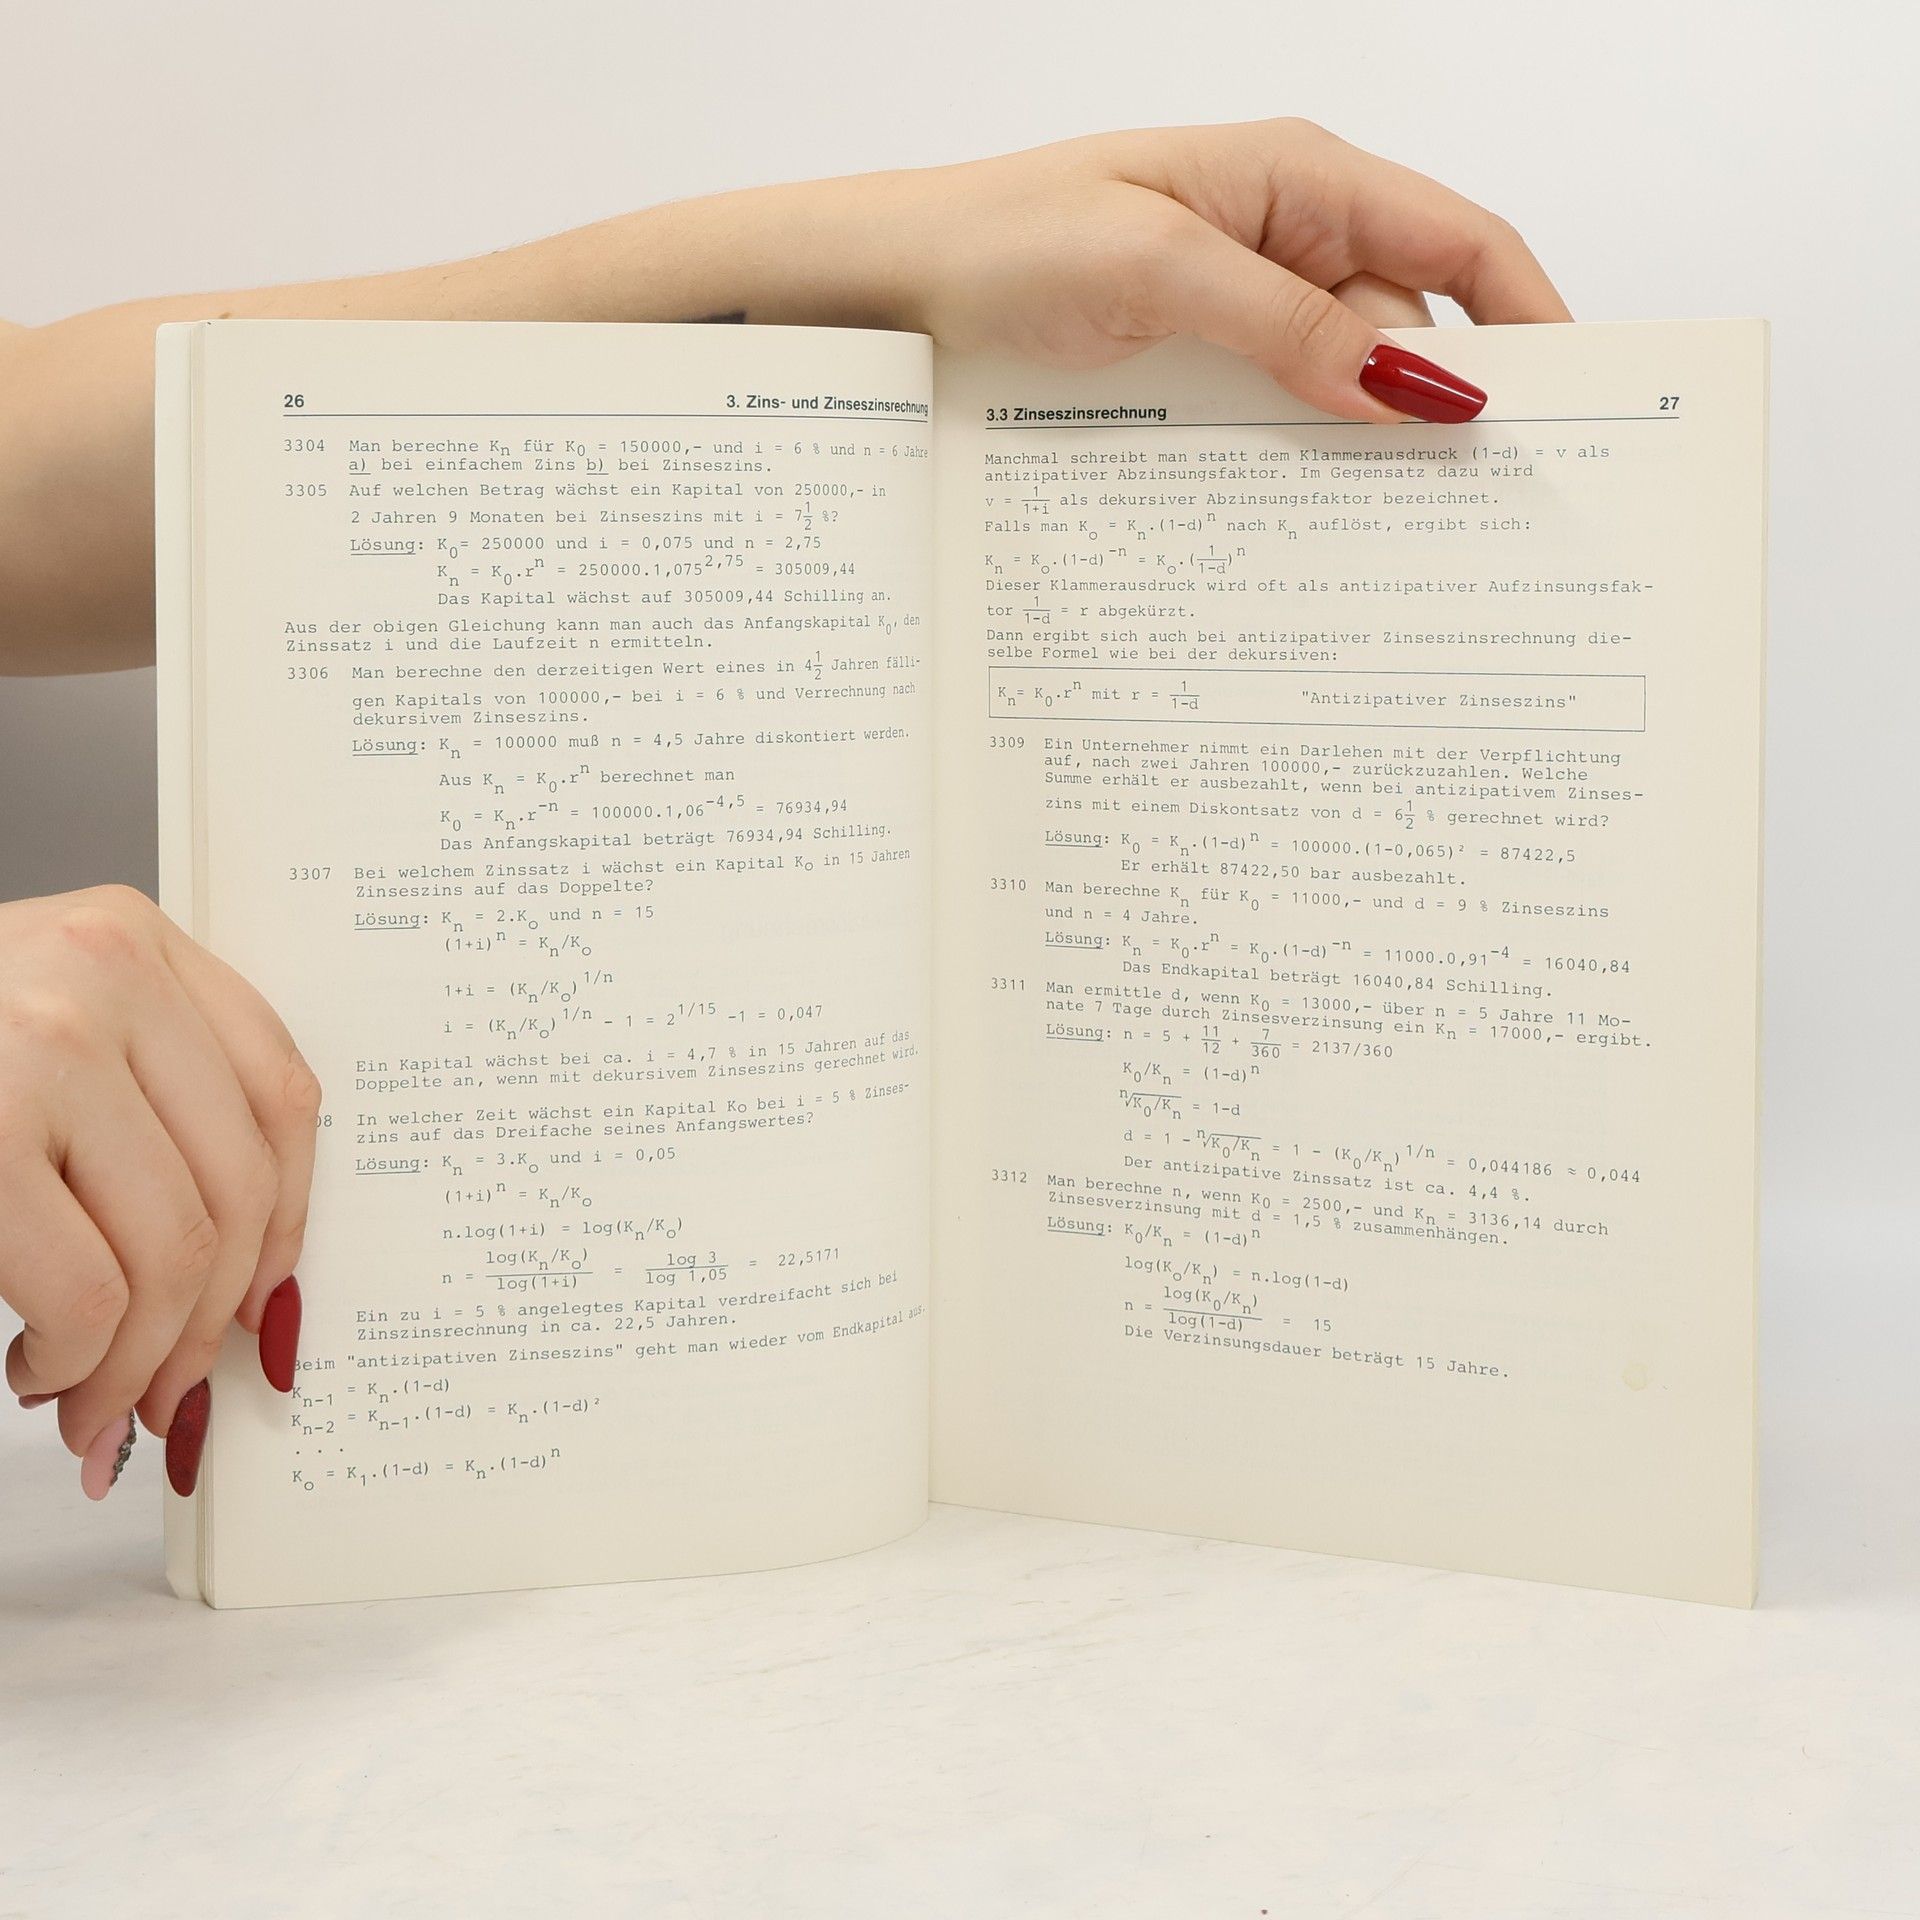 26 3. Zins- und Zinseszinsrechnung
3304 Man berechne Kn für K0 = 150000,- und i = 6 % und n = 6 Jahre
a) bei einfachem Zins b) bei Zinseszins.
3305 Auf welchen Betrag wächst ein Kapital von 250000,- in
2 Jahren 9 Monaten bei Zinseszins mit i = 7 1/2 %?
Lösung: K0= 250000 und i = 0,075 und n = 2,75
Kn = K0.r^n = 250000.1,075^2,75 = 305009,44
Das Kapital wächst auf 305009,44 Schilling an.
Aus der obigen Gleichung kann man auch das Anfangskapital K0, den
Zinssatz i und die Laufzeit n ermitteln.
3306 Man berechne den derzeitigen Wert eines in 4 1/2 Jahren fälli-
gen Kapitals von 100000,- bei i = 6 % und Verrechnung nach
dekursivem Zinseszins.
Lösung: Kn = 100000 muß n = 4,5 Jahre diskontiert werden.
Aus Kn = K0.r^n berechnet man
K0 = Kn.r^-n = 100000.1,06^-4,5 = 76934,94
Das Anfangskapital beträgt 76934,94 Schilling.
3307 Bei welchem Zinssatz i wächst ein Kapital Ko in 15 Jahren
Zinseszins auf das Doppelte?
Lösung: Kn = 2.Ko und n = 15
(1+i)^n = Kn/Ko
1+i = (Kn/Ko)^1/n
i = (Kn/Ko)^1/n - 1 = 2^1/15 -1 = 0,047
Ein Kapital wächst bei ca. i = 4,7 % in 15 Jahren auf das
Doppelte an, wenn mit dekursivem Zinseszins gerechnet wird.
08 In welcher Zeit wächst ein Kapital Ko bei i = 5 % Zinses-
zins auf das Dreifache seines Anfangswertes?
Lösung: Kn = 3.Ko und i = 0,05
(1+i)^n = Kn/Ko
n.log(1+i) = log(Kn/Ko)
n = log(Kn/Ko)/log(1+i) = log 3/log 1,05 = 22,5171
Ein zu i = 5 % angelegtes Kapital verdreifacht sich bei
Zinszinsrechnung in ca. 22,5 Jahren.
Beim "antizipativen Zinseszins" geht man wieder vom Endkapital aus.
Kn-1 = Kn.(1-d)
Kn-2 = Kn-1.(1-d) = Kn.(1-d)²
. . .
Ko = K1.(1-d) = Kn.(1-d)^n
3.3 Zinseszinsrechnung 27
Manchmal schreibt man statt dem Klammerausdruck (1-d) = v als
antizipativer Abzinsungsfaktor. Im Gegensatz dazu wird
v = 1/1+i als dekursiver Abzinsungsfaktor bezeichnet.
Falls man Ko = Kn.(1-d)^n nach Kn auflöst, ergibt sich:
Kn = Ko.(1-d)^-n = Ko.(1/1-d)^n
Dieser Klammerausdruck wird oft als antizipativer Aufzinsungsfak-
tor 1/1-d = r abgekürzt.
Dann ergibt sich auch bei antizipativer Zinseszinsrechnung die-
selbe Formel wie bei der dekursiven:
Kn= K0.r^n mit r = 1/1-d "Antizipativer Zinseszins"
3309 Ein Unternehmer nimmt ein Darlehen mit der Verpflichtung
auf, nach zwei Jahren 100000,- zurückzuzahlen. Welche
Summe erhält er ausbezahlt, wenn bei antizipativem Zinses-
zins mit einem Diskontsatz von d = 6 1/2 % gerechnet wird?
Lösung: K0 = Kn.(1-d)^n = 100000.(1-0,065)² = 87422,5
Er erhält 87422,50 bar ausbezahlt.
3310 Man berechne Kn für K0 = 11000,- und d = 9 % Zinseszins
und n = 4 Jahre.
Lösung: Kn = K0.r^n = K0.(1-d)^-n = 11000.0,91^-4 = 16040,84
Das Endkapital beträgt 16040,84 Schilling.
3311 Man ermittle d, wenn K0 = 13000,- über n = 5 Jahre 11 Mo-
nate 7 Tage durch Zinsesverzinsung ein Kn = 17000,- ergibt.
Lösung: n = 5 + 11/12 + 7/360 = 2137/360
K0/Kn = (1-d)^n
n√K0/Kn = 1-d
d = 1 - n√K0/Kn = 1 - (K0/Kn)^1/n = 0,044186 ≈ 0,044
Der antizipative Zinssatz ist ca. 4,4 %.
3312 Man berechne n, wenn K0 = 2500,- und Kn = 3136,14 durch
Zinsesverzinsung mit d = 1,5 % zusammenhängen.
Lösung: K0/Kn = (1-d)^n
log(Ko/Kn) = n.log(1-d)
n = log(K0/Kn)/log(1-d) = 15
Die Verzinsungsdauer beträgt 15 Jahre.